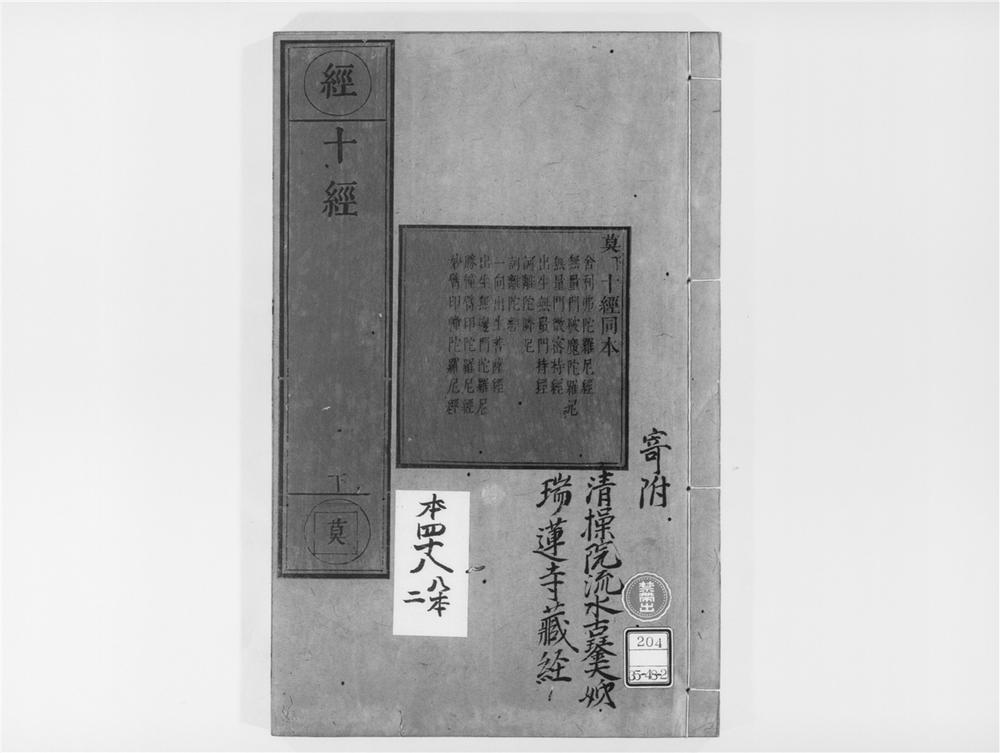 經
十經
下
莫
莫下 十經同本
舍利弗陀羅尼經
無量門破魔陀羅尼
無量門微密持經
出生無量門持經
訶離陀隣尼
訶離陀經
一向出生菩薩經
出生無邊門陀羅尼
勝幢臂印陀羅尼經
妙臂印幢陀羅尼經
寄附
清操院流水古
瑞蓮寺藏経
禁帶出
204
35-48-2
本四十八
八本
二